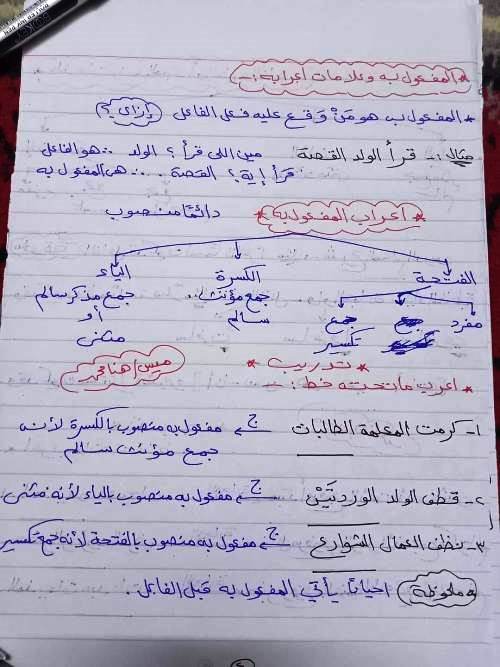 * المفعول به وعلامات إعرابه :-
* المفعول به هو مَنْ وَقع عليه فعل الفاعل (إزاى؟)
مثال :- قرأ الولد القصة مين اللى قرأ؟ الولد ∴ هو الفاعل
قرأ إية؟ القصة ... ∴ هى المفعول به
* إعراب المفعول به * دائمًا منصوب
الفتحة الكسرة الياء
مفرد جمع تكسير جمع مؤنث سالم جمع مذكر سالم أو مثنى
* تدريب * ميس/هنا محمد
* اعرب ما تحته خط :-
١- كرمت المعلمة الطالبات ج مفعول به منصوب بالكسرة لأنه
جمع مؤنث سالم
٢- قطف الولد الوردتَيْن ج مفعول به منصوب بالياء لأنه مثنى
٣- نظف العمال الشوارع ج مفعول به منصوب بالفتحة لأنه جمع تكسير
* ملحوظة احيانًا يأتي المفعول به قبل الفاعل .